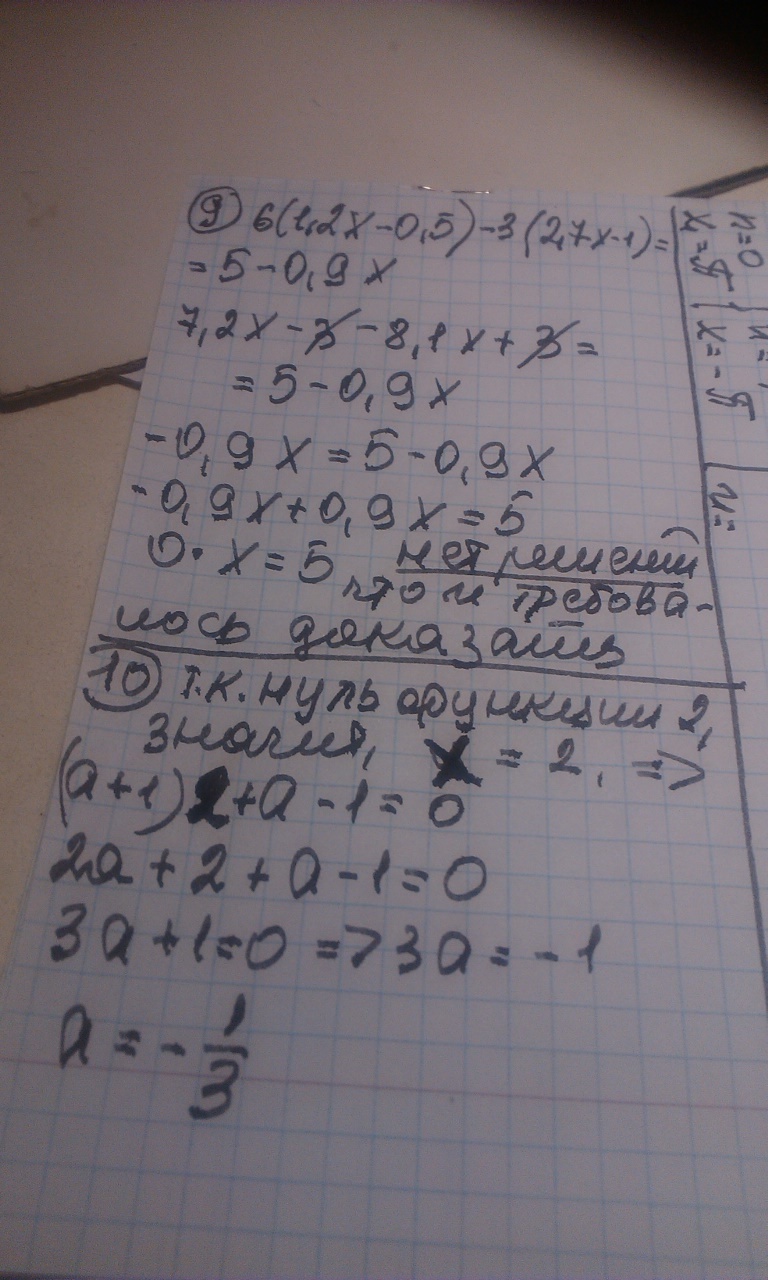 9 6(1,2x-0,5)-3(2,7x-1)=
=5-0,9x
7,2x-3-8,1x+3=
=5-0,9x
-0,9x=5-0,9x
-0,9x+0,9x=5
0·x=5, нет решений
что и требова-
лось доказать
10 т.к. нуль функции 2,
значит, x=2, =>
(a+1)2+a-1=0
2a+2+a-1=0
3a+1=0 =>3a=-1
a=-1/3
n=0
n=